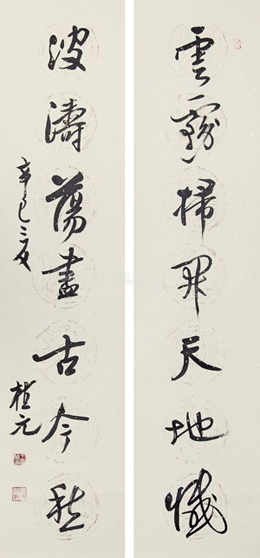 雲霧掃開天地憾
波濤蕩盡古今愁
辛巳三友
植元